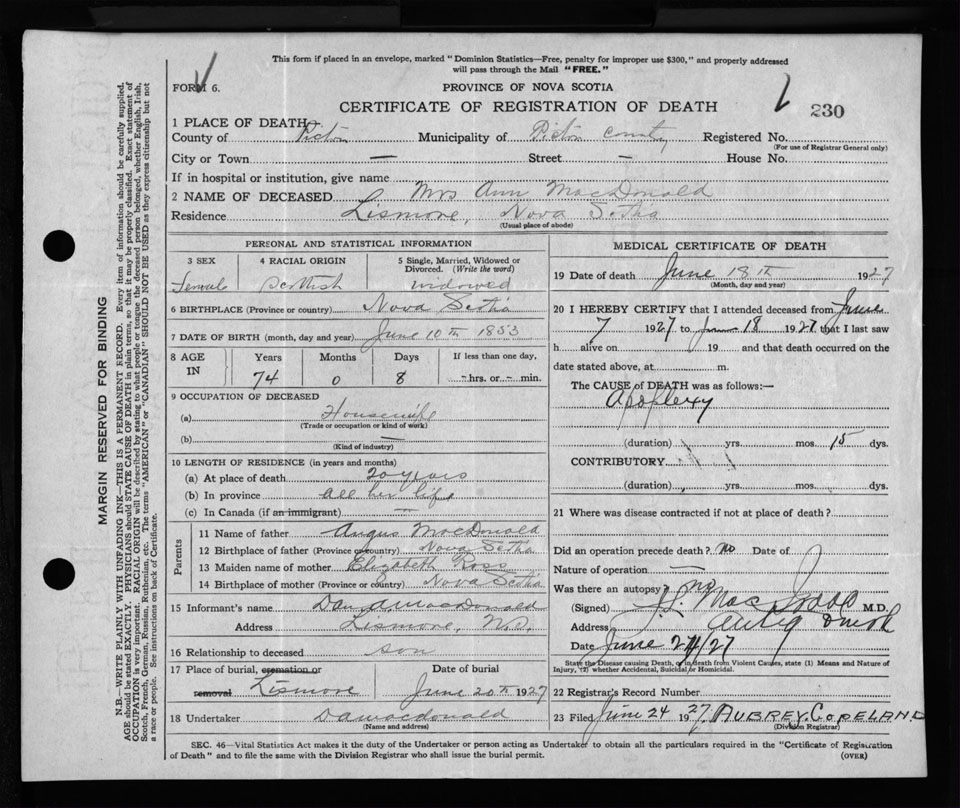 This form if placed in an envelope, marked "Dominion Statistics—Free, penalty for improper use $300," and properly addressed
will pass through the Mail "FREE."
FORM 6.
PROVINCE OF NOVA SCOTIA
CERTIFICATE OF REGISTRATION OF DEATH
230
1 PLACE OF DEATH
County of Pictou Municipality of Pictou County Registered No.
(For use of Registrar General only)
City or Town — Street — House No.
If in hospital or institution, give name
2 NAME OF DECEASED Mrs Ann MacDonald
Residence Lismore, Nova Scotia
(Usual place of abode)
PERSONAL AND STATISTICAL INFORMATION
3 SEX 4 RACIAL ORIGIN 5 Single, Married, Widowed or
Divorced. (Write the word)
Female Scottish widowed
6 BIRTHPLACE (Province or country) Nova Scotia
7 DATE OF BIRTH (month, day and year) June 10th 1853
8 AGE IN Years Months Days If less than one day,
74 0 8 - hrs. or - min.
9 OCCUPATION OF DECEASED
(a) Housewife
(Trade or occupation or kind of work)
(b) —
(Kind of industry)
10 LENGTH OF RESIDENCE (in years and months)
(a) At place of death 20 years
(b) In province all her life
(c) In Canada (if an immigrant) —
Parents
11 Name of father Angus MacDonald
12 Birthplace of father (Province or country) Nova Scotia
13 Maiden name of mother Elizabeth Ross
14 Birthplace of mother (Province or country) Nova Scotia
15 Informant's name Dan A MacDonald
Address Lismore, N.S.
16 Relationship to deceased son
17 Place of burial, cremation or Date of burial
removal Lismore June 20th 1927
18 Undertaker DA macdonald
(Name and address)
MEDICAL CERTIFICATE OF DEATH
19 Date of death June 18th 1927
(Month, day and year)
20 I HEREBY CERTIFY that I attended deceased from June
7 1927 to June 18 1927 that I last saw
h alive on 19 and that death occurred on the
date stated above, at m.
The CAUSE of DEATH was as follows:—
Apoplexy
(duration) yrs. mos. 15 dys.
CONTRIBUTORY
(duration) yrs. mos. dys.
21 Where was disease contracted if not at place of death?
Did an operation precede death? No Date of
Nature of operation —
Was there an autopsy? no
(Signed) M.D.
Address
Date June 24/27
State the Disease causing Death, or in death from Violent Causes, state (1) Means and Nature of
Injury, (2) whether Accidental, Suicidal or Homicidal.
22 Registrar's Record Number
23 Filed June 24 1927. AUBREY COPELAND
(Division Registrar)
SEC. 46—Vital Statistics Act makes it the duty of the Undertaker or person acting as Undertaker to obtain all the particulars required in the "Certificate of Registration
of Death" and to file the same with the Division Registrar who shall issue the burial permit.
(OVER)
MARGIN RESERVED FOR BINDING
N.B.—WRITE PLAINLY WITH UNFADING INK—THIS IS A PERMANENT RECORD. Every item of information should be carefully supplied.
AGE should be stated EXACTLY. PHYSICIANS should STATE CAUSE OF DEATH in plain terms, so that it may be properly classified. Exact statement of
OCCUPATION is very important. RACIAL ORIGIN will be described by stating to what people or tongue the deceased person belonged, whether English, Irish,
Scotch, French, German, Russian, Ruthenian, etc. The terms "AMERICAN" or "CANADIAN" SHOULD NOT BE USED as they express citizenship but not
a race or people. See instructions on back of Certificate.